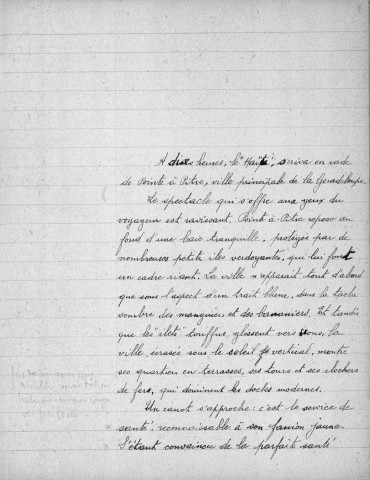 A dix heures, le "Haïti", arriva en rade
de Pointe à Pitre, ville principale de la Guadeloupe.
Le spectacle qui s'offre aux yeux du
voyageur est ravissant. Pointe à Pitre repose au
fond d'une baie tranquille, protégée par de
nombreuses petites îles verdoyantes, qui lui font
un cadre riant. La ville n'apparaît tout d'abord
que sous l'aspect d'un trait blanc, dans la tache
sombre des manguiers et des bananiers. Et tandis
que les "îlets" touffus, glissent vers nous, la
ville, écrasée sous le soleil vertical, montre
ses quartiers en terrasses, ses tours et ses clochers
de fers, qui dominent les docks modernes.
Un canot s'approche : c'est le service de
santé, reconnaissable à son fanion jaune.
S'étant convaincu de la parfaite santé